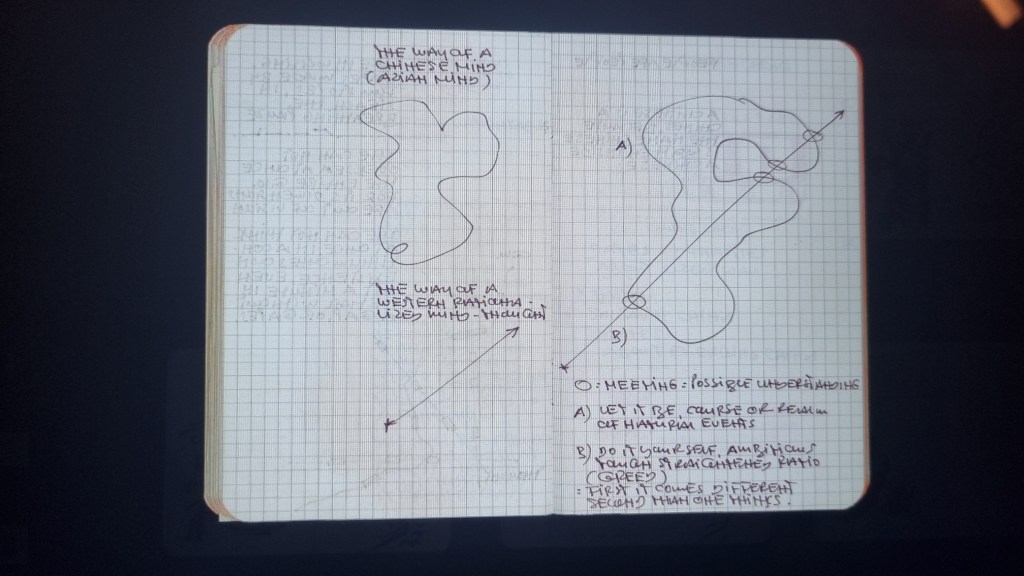 THE WAY OF A
CHINESE MIND
(ASIAN MIND)
THE WAY OF A
WESTERN RATIONA-
LIZED MIND - THOUGHT
A)
B)
O : MEETING : POSSIBLE UNDERSTANDING
A) LET IT BE, COURSE OR REALM
OF NATURAL EVENTS
B) DO IT YOURSELF, AMBITIOUS
STRAIGHTENED RATIO
(GREED)
: FIRST IT COMES DIFFERENT
SECOND THAN ONE THINKS.